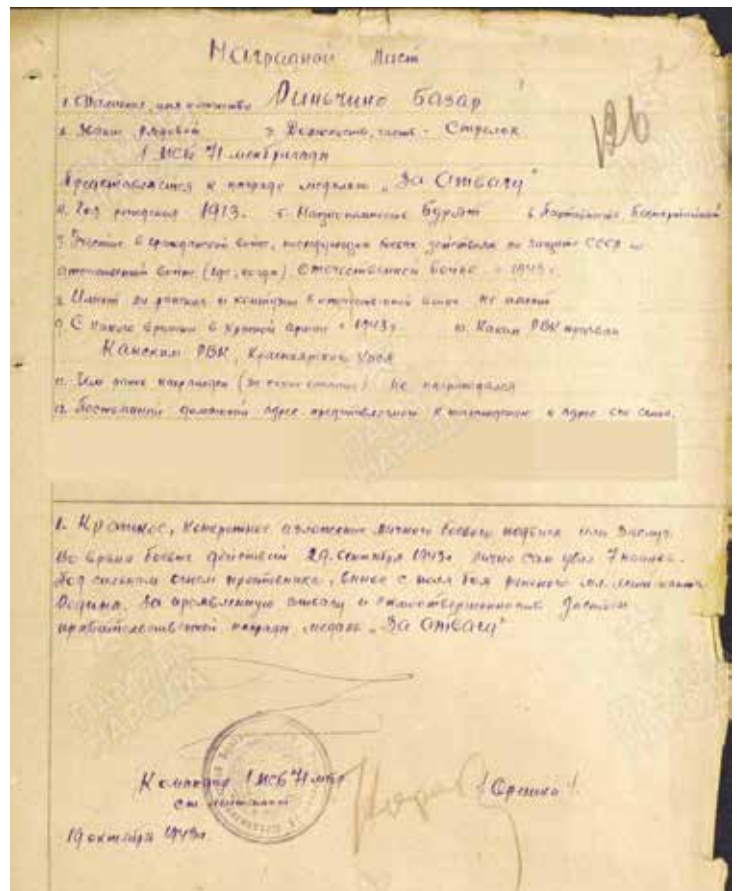 Наградной лист
1. Фамилия, имя и отчество Риньчино Базар
2. Звание рядовой 3. Должность, часть - Стрелок
1 МСБ 71 мехбригады
Представляется к награде медалью „За Отвагу"
4. Год рождения 1913. 5. Национальность Бурят 6. Партийность Беспартийный
7. Участие в гражданской войне, последующих боевых действиях по защите СССР и
отечественной войне (где, когда) Отечественной войне с 1943 г.
8. Имеет ли ранения и контузии в отечественной войне Не имеет
9. С какого времени в Красной армии с 1943 г. 10. Каким РВК призван
Канским РВК, Красноярского края
11. Чем ранее награжден (за какие отличия) Не награждался
12. Постоянный домашний адрес представляемого к награждению и адрес его семьи.
1. Краткое, конкретное изложение личного боевого подвига или заслуг.
Во время боевых действий 29. сентября 1943 г лично сам убил 7 немцев.
Под сильным огнем противника, вынес с поля боя раненого мл. лейтенанта
За проявленную отвагу и самоотверженность достоин
правительственной награды медаль „За Отвагу"
Командир 1 МСБ 71 мбр
ст лейтенант
19 октября 1943 г.
ПАМЯТЬ
НАРОДА